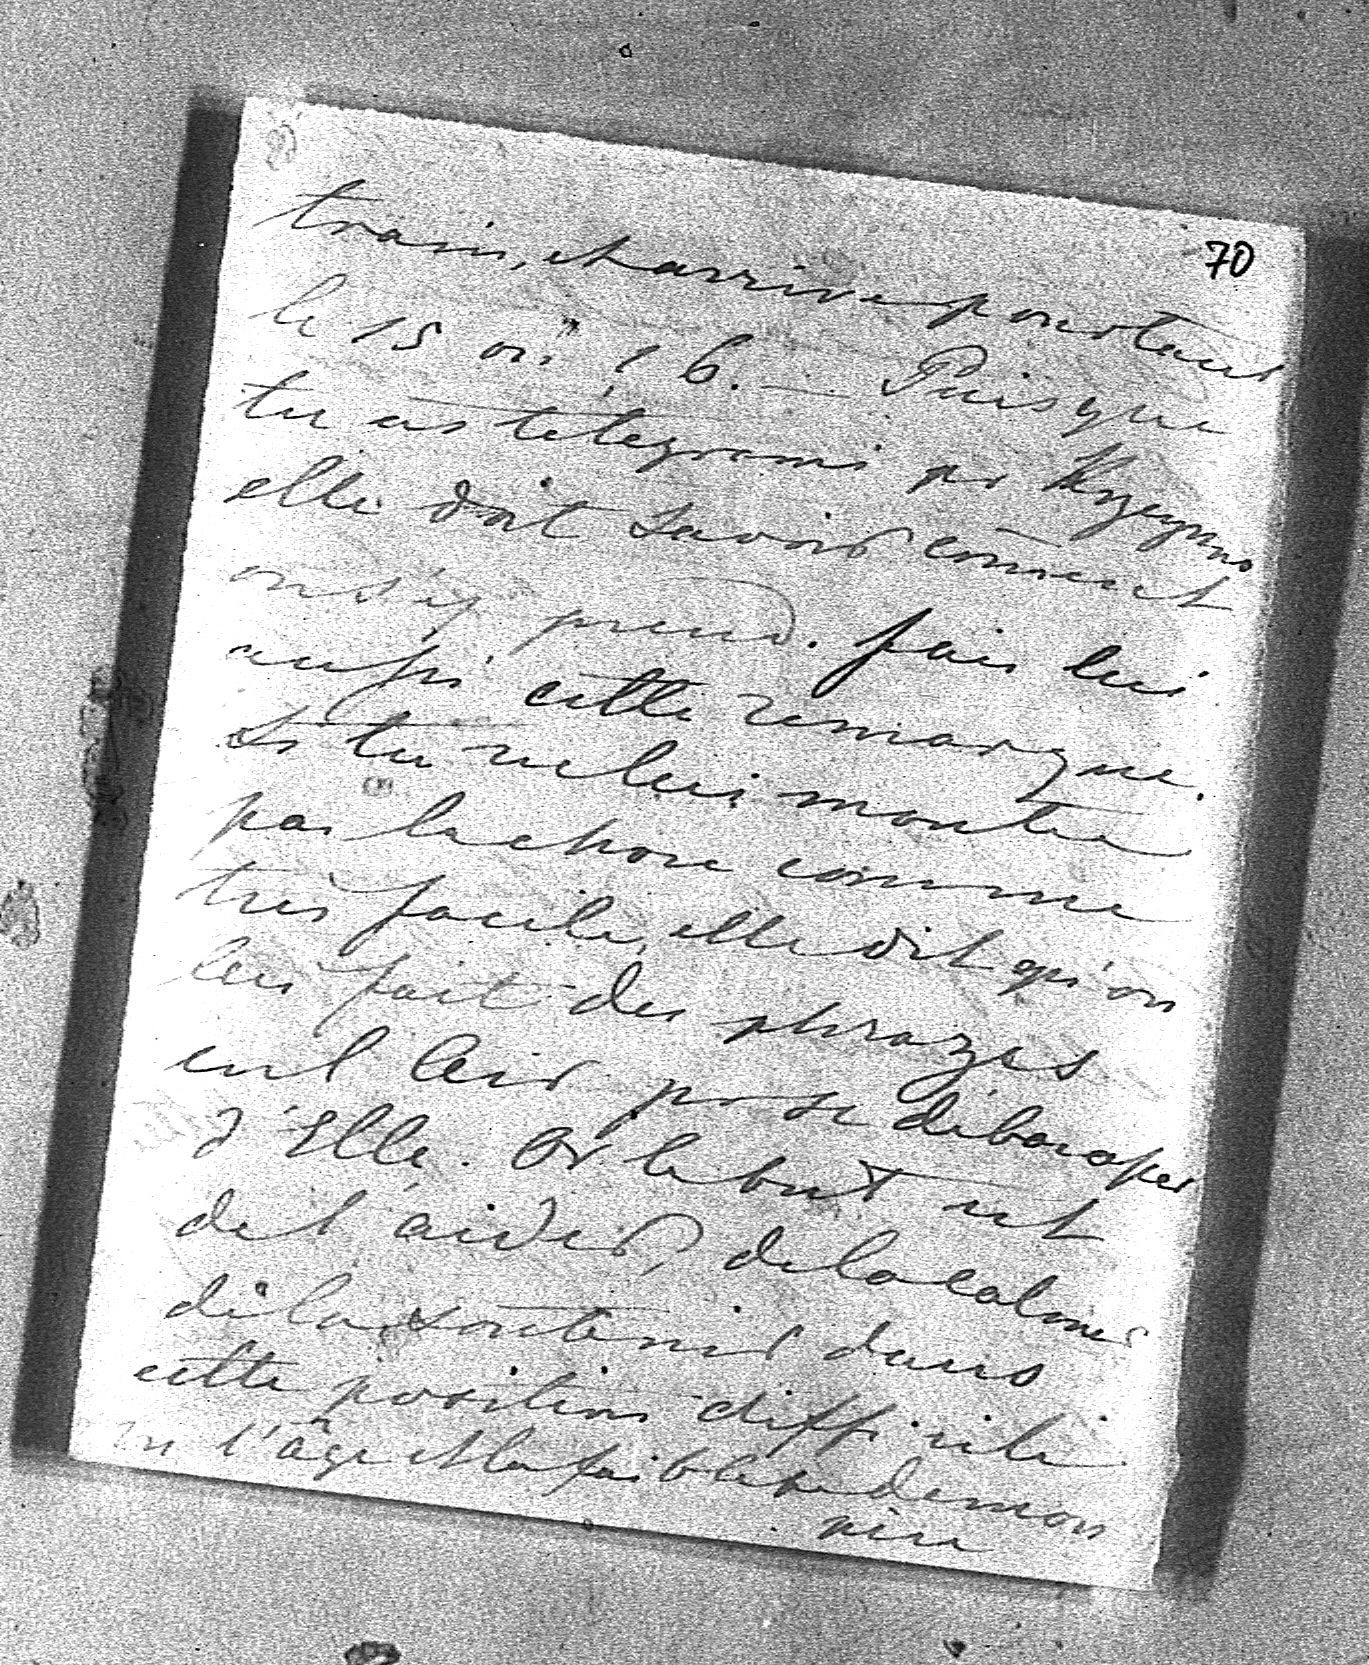 70
train, et arrive pourtant
le 15 ou 16. — Puisque
tu as télégrami pr
elle doit savoir coment
on s'y prend. fais lui
aussi cette remarque.
Si tu ne lui montre
pas la chose comme
très facile, elle dit qu'on
lui fait des phrazes
en l'air pr se débarasser
d'Elle. Or le but est
de l'aider, de la calmer
de la soutenir dans
cette position difficile
vu l'âge et la faiblesse de mon
père